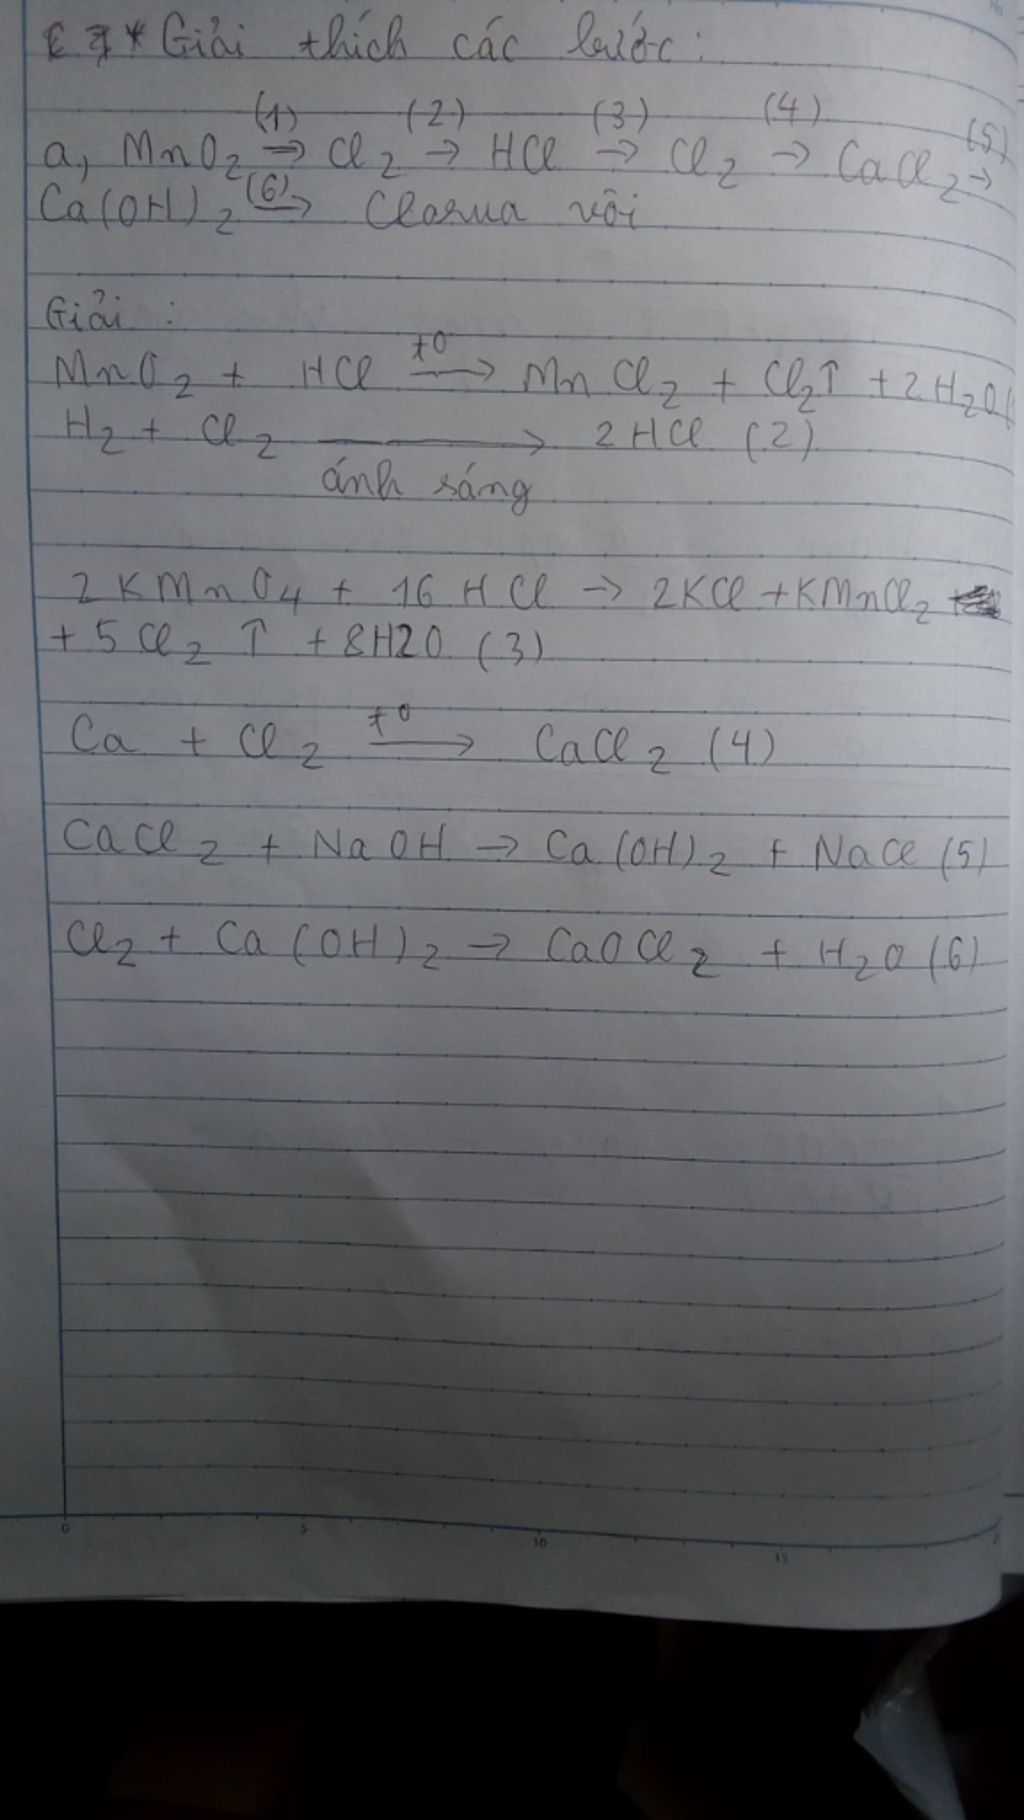 * Giải thích các bước:
(1) (2) (3) (4) (5)
a, MnO2 → Cl2 → HCl → Cl2 → CaCl2 →
Ca(OH)2 (6)→ Clorua vôi
Giải :
MnO2 + HCl t0→ MnCl2 + Cl2↑ + 2H2O
H2 + Cl2 → 2HCl (2)
ánh sáng
2KMnO4 + 16HCl → 2KCl + KMnCl2
+ 5Cl2 ↑ + 8H2O (3)
Ca + Cl2 t0→ CaCl2 (4)
CaCl2 + NaOH → Ca(OH)2 + NaCl (5)
Cl2 + Ca(OH)2 → CaOCl2 + H2O (6)
0 5 10 15